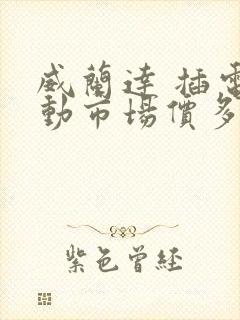 威蘭達 插電
動市場價多
紫色曾経